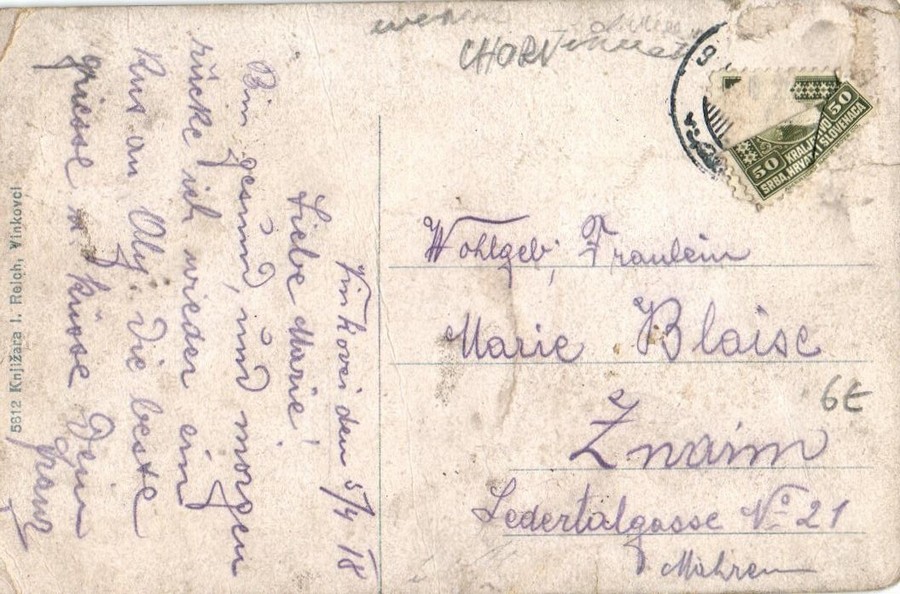 CHORV
50
KRALJEVSTVO
SRBA, HRVATA I SLOVENACA
50
Vinkovci den 5/4 18
Liebe Marie!
Bin gesund, und morgen
rücke ich wieder ein
Kus an Oly. Die beste
griesse u küsse Dein
Franz
Wohlgeb. Fraulein
Marie Blaise
Znaim
Ledertalgasse No 21
Mähren
6€
5812 Knjižara I. Reich, Vinkovci